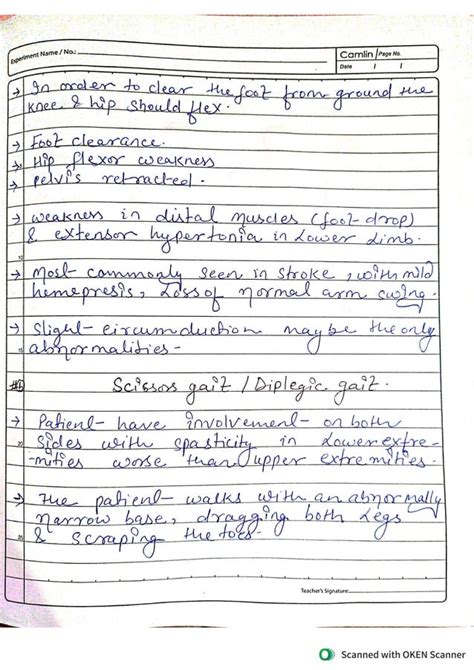 Experiment Name / No.:
Camlin Page No.
Date / /
→ In order to clear the foot from ground the
knee & hip should flex.
→ Foot clearance.
→ Hip flexor weakness
→ pelvis retracted.
→ weakness in distal muscles (foot-drop)
& extensor hypertonia in Lower Limb.
→ Most commonly seen in stroke, with mild
hemepresis, Loss of normal arm swing.
→ Slight circumduction maybe the only
abnormalities-
Scissors gait / Diplegic gait.
→ Patient have involvement on both
Sides with spasticity in Lower extre-
-mities worse than upper extremities.
→ The patient walks with an abnormally
narrow base, dragging both Legs
& scraping the toes-
Teacher's Signature:
Scanned with OKEN Scanner